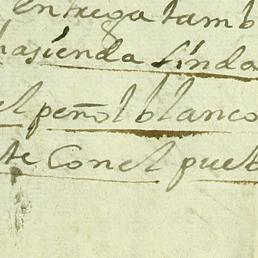 entrega tamb
hasienda linda
el peñol blanco
te Con el pueb